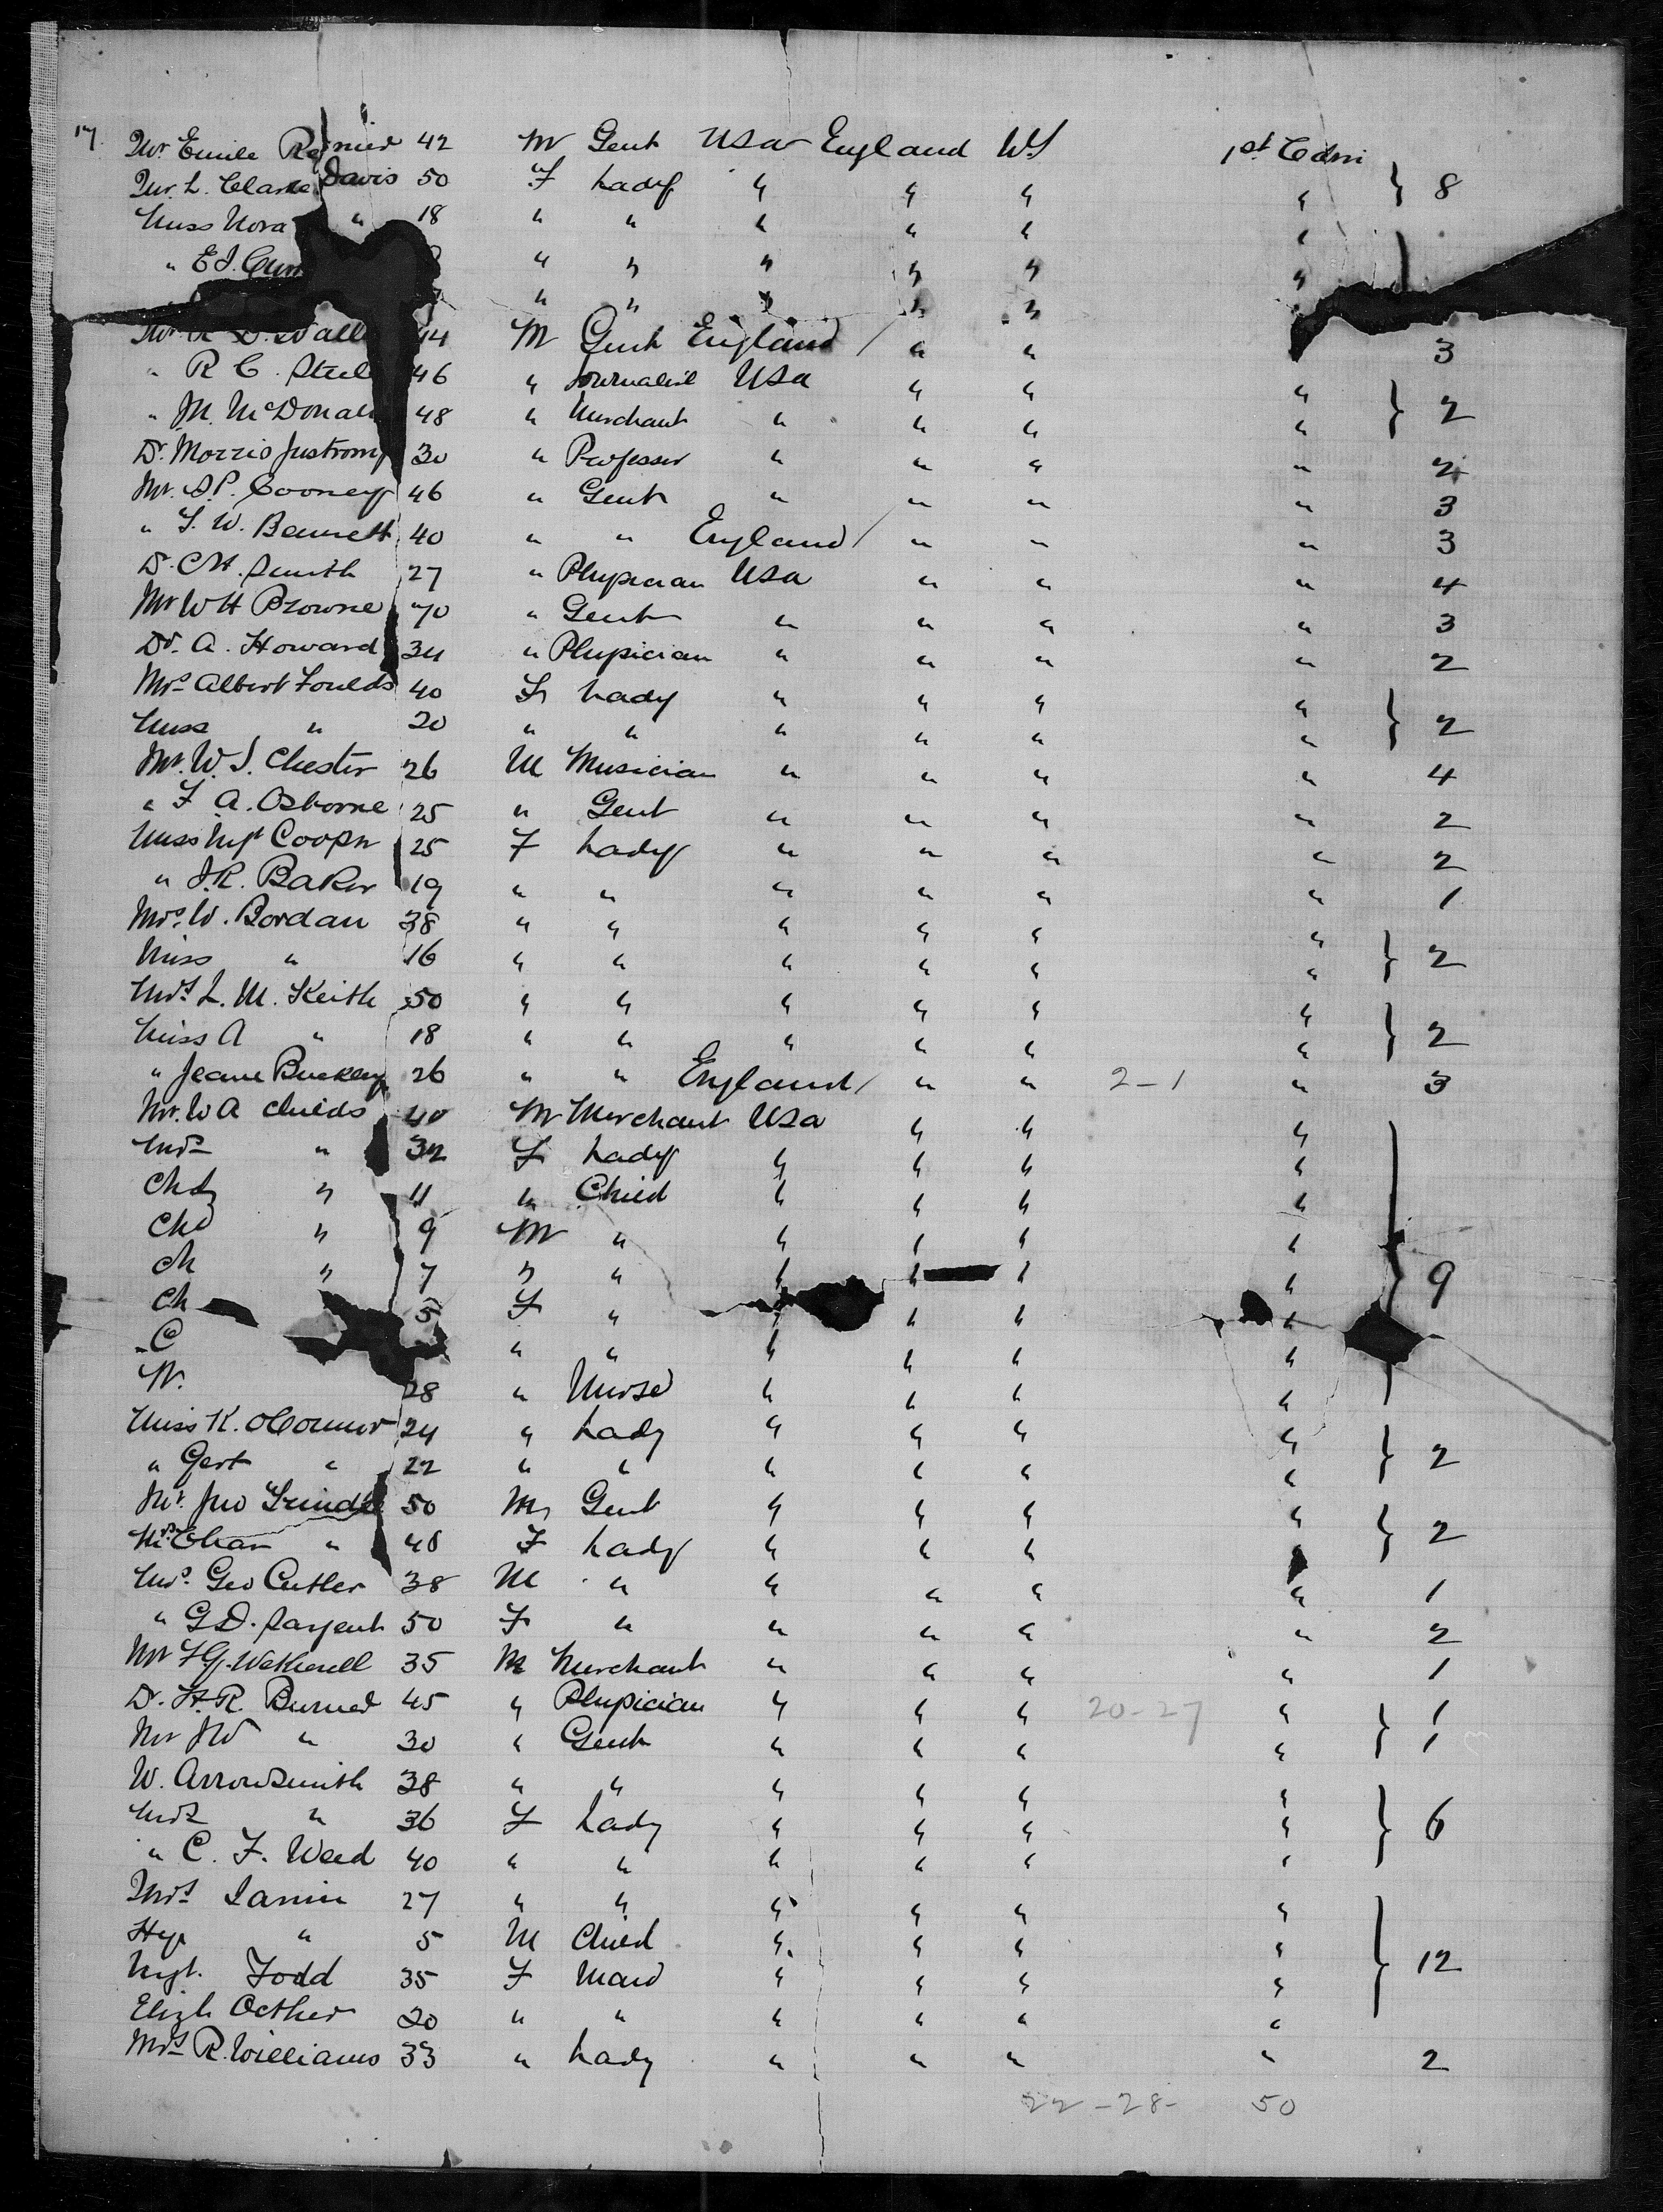 17. Mr. Emile Re nier 42 M Gent USa England US 1st Cabin
Mr. L. Clarke Davis 50 F Lady " " " " } 8
Miss Nora " 18 " " " " " "
" E I. " " " " " "
" " " " "
Mr 44 M Gent England / " " 3
" R C. Steel 46 " Journalist USa " " "
" M. McDonal 48 " Merchant " " " " } 2
Dr. Morris Jastrow 30 " Professor " " " " 2
Mr. S. P. Cooney 46 " Gent " " " " 3
" F. W. Bennett 40 " " England / " " " 3
Dr. C H. Smith 27 " Physician USa " " " 4
Mr W H Browne 70 " Gent " " " " 3
Dr. A. Howard 34 " Physician " " " " 2
Mrs Albert Foulds 40 F Lady " " " "
Miss " 20 " " " " " " } 2
Mr. W. S. Chester 26 M Musician " " " " 4
" F. A. Osborne 25 " Gent " " " " 2
Miss Mgt Coopr 25 F Lady " " " " 2
" J. R. Baker 19 " " " " " " 1
Mrs. W. Bordan 38 " " " " " "
Miss " 16 " " " " " " } 2
Mrs L. M. Keith 50 " " " " " "
Miss A " 18 " " " " " " } 2
" Jeanie 26 " " England / " " 2-1 " 3
Mr. W A Childs 40 M Merchant USa " " "
Mrs " 32 F Lady " " " "
Chd " 11 " Child " " " "
Chd " 9 M " " " " "
Ch " 7 " " " " " " } 9
Ch 5 F " " " " "
C " " " " " "
N. 28 " Nurse " " " "
Miss K. oConnor 24 " Lady " " " "
" Gert " 22 " " " " " " } 2
Mr. Jno 50 M Gent " " " "
Mrs " 48 F Lady " " " " } 2
Mrs. Geo Cutler 38 M " " " " " 1
" G D. Sargent 50 F " " " " " 2
Mr F. G. Wetherell 35 M Merchant " " " " 1
Dr. H. R. Burner 45 " Physician " " " 20-27 " } 1
Mr JW " 30 " Gent " " " " 1
W. Arrowsmith 38 " " " " " "
Mrs " 36 F Lady " " " " } 6
" C. F. Weed 40 " " " " " "
Mrs Lamin 27 " " " " " "
Hy " 5 M Child " " " "
Mgt. Todd 35 F Maid " " " " } 12
Elizh 20 " " " " " "
Mrs R. Williams 33 " Lady " " " " 2
22-28- 50